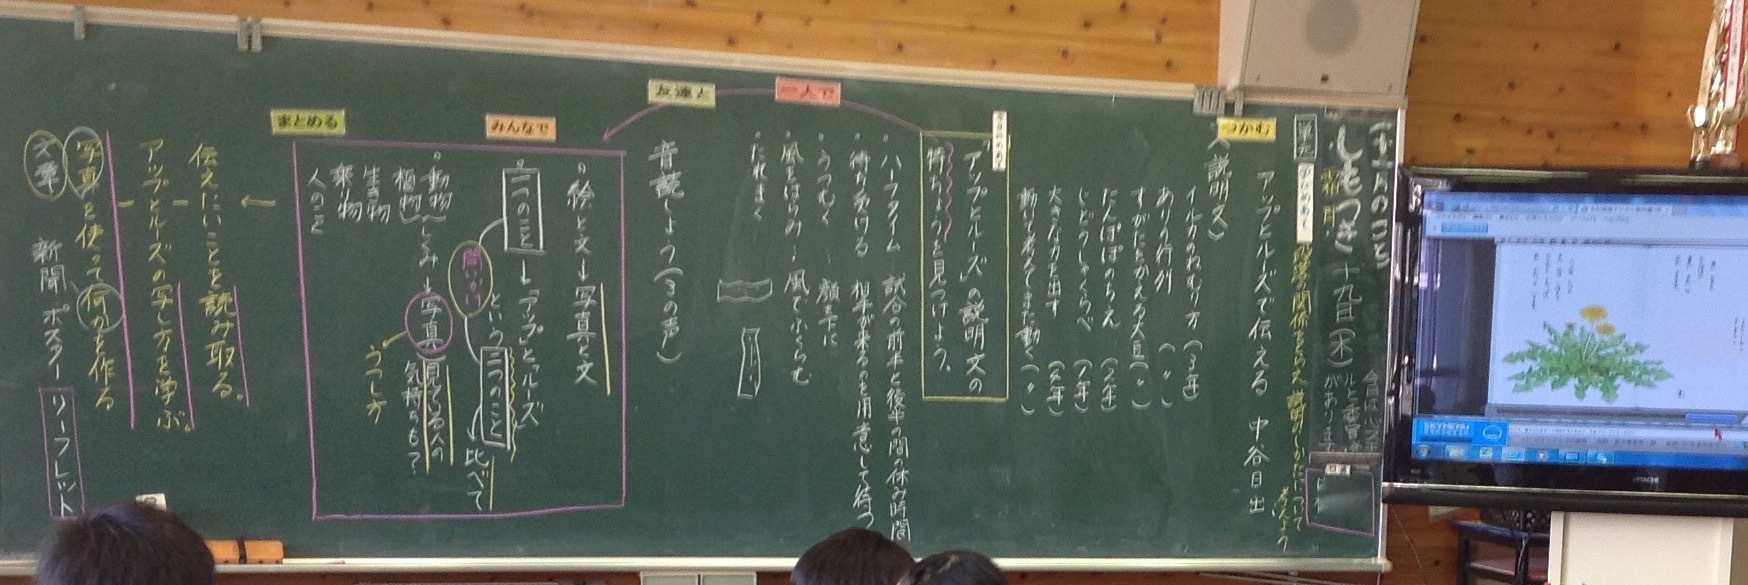 しもつき
十九日(木)
単元
段落の関係をとらえ、説明のしかたについて
アップとルーズで伝える 中谷日出
つかむ
<説明文>
イルカのねむり方(3年)
ありの行列(〃)
すがたをかえる大豆(〃)
たんぽぽのちえ(2年)
じどう車くらべ(1年)
大きな力を出す(4年)
動いて、考えて、また動く(〃)
「アップとルーズ」の説明文の
特ちょうを見つけよう。
一人で
友達と
・ハーフタイム 試合の前半と後半の間の休み時間
・待ち受ける 相手が来るのを用意して待つ
・うつむく 顔を下に
・風をはらみ 風でふくらむ
・たれまく
音読しよう(3の声)
みんなで
絵と文→写真と文
二つのこと→「アップ」と「ルーズ」
という二つのこと 比べて
問いかけ
・動物
植物
しくみ→写真
見ている人の
気持ちも?
うつし方
生き物
乗り物
人のこと
まとめる
伝えたいことを読み取る。
アップとルーズの写し方を学ぶ。
写真を使って何かを作る
文章
新聞・ポスター リーフレット